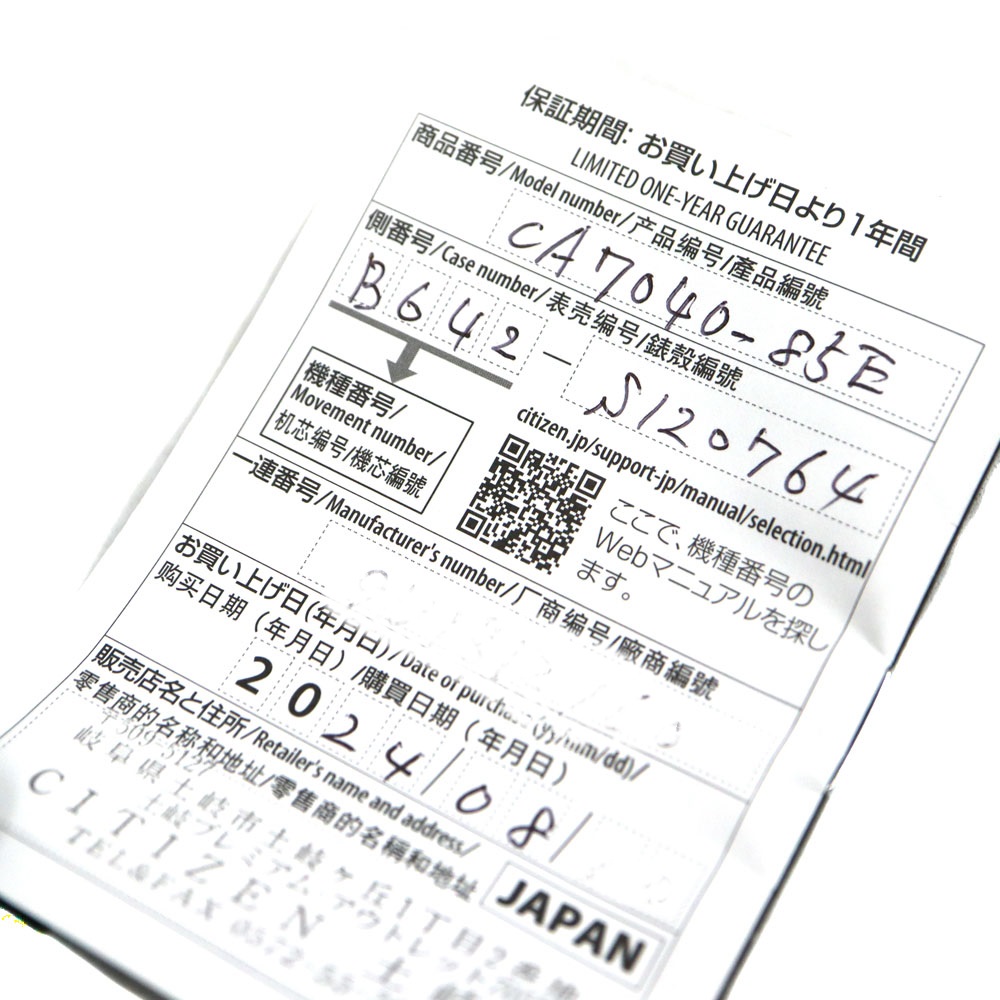 保証期間: お買い上げ日より1年間
LIMITED ONE-YEAR GUARANTEE
商品番号/Model number/产品编号/產品編號
CA7040-85E
側番号/Case number/表壳编号/錶殼編號
B642 — S120764
機種番号/
Movement number/
机芯编号/機芯編號
citizen.jp/support-jp/manual/selection.html
ここで、機種番号の
Webマニュアルを探し
ます。
一連番号/Manufacturer's number/厂商编号/廠商編號
お買い上げ日(年月日)/Date of purchase (yy/mm/dd)/
购买日期（年月日）/購買日期（年月日）
2024/08/
販売店名と住所/Retailer's name and address/
零售商的名称和地址/零售商的名稱和地址
JAPAN
岐阜県土岐市土岐ケ丘1丁目2番地
土岐プレミアムアウトレット
CITIZEN 土岐
TEL&FAX 0572-55